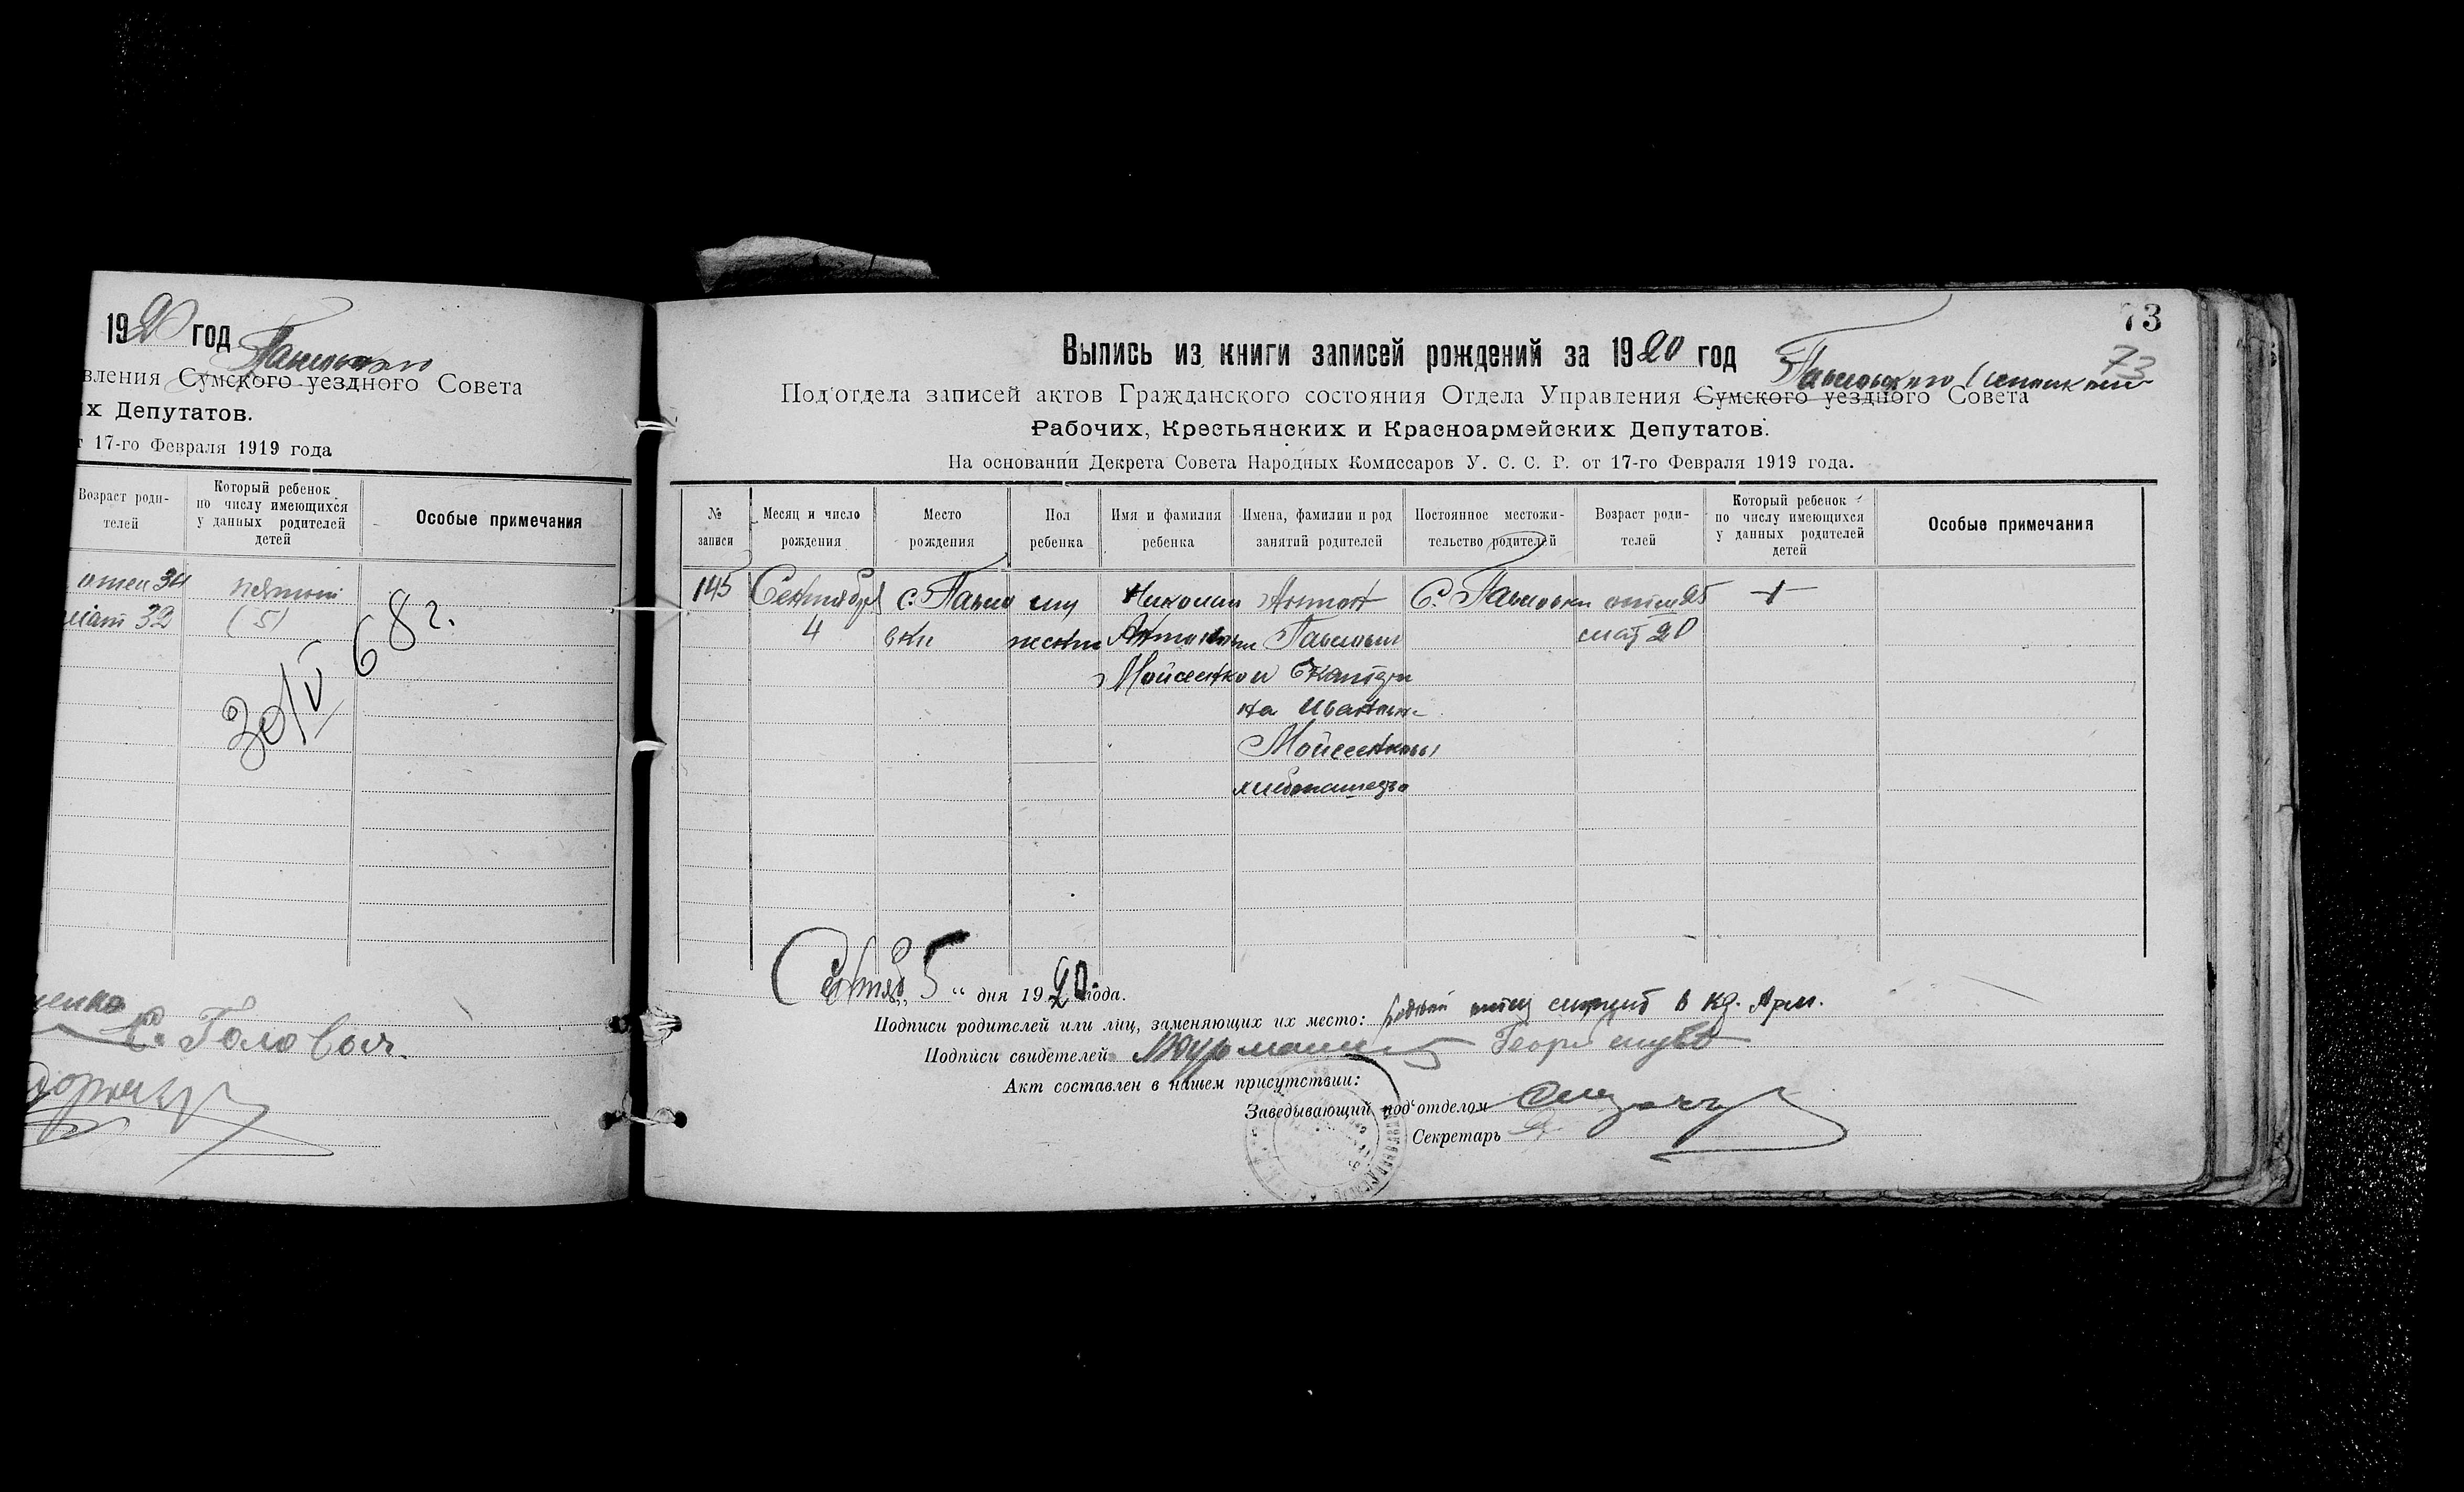 1920 год
Павловского
вления Сумского уездного Совета
х Депутатов.
т 17-го Февраля 1919 года
Возраст роди-
телей
Который ребенок
по числу имеющихся
у данных родителей
детей
Особые примечания
отец 34
мат 32
пятый
(5)
30/V 68 г.
енко
С. Головач.
73
73
Выпись из книги записей рождений за 1920 год
Павловского
Под'отдела записей актов Гражданского состояния Отдела Управления Сумского уездного Совета
Рабочих, Крестьянских и Красноармейских Депутатов.
На основании Декрета Совета Народных Комиссаров У. С. С. Р. от 17-го Февраля 1919 года.
№
записи
Месяц и число
рождения
Место
рождения
Пол
ребенка
Имя и фамилия
ребенка
Имена, фамилии и род
занятий родителей
Постоянное местожи-
тельство родителей
Возраст роди-
телей
Который ребенок
по числу имеющихся
у данных родителей
детей
Особые примечания
145
Сентября
4
с. Павло
вки
му
жской
Николай
Антонович
Мойсеенков
Антон
Павлович
Екатери
на Иванов.
Мойсеенковы
хлебопашество
С. Павловки
отец 25
мат 20
Сентяб „ 5 “ дня 1920 года.
Подписи родителей или лиц, заменяющих их место: отец служит в кр. Арм.
Подписи свидетелей
Акт составлен в нашем присутствии:
Заведывающий под'отделом
Секретарь